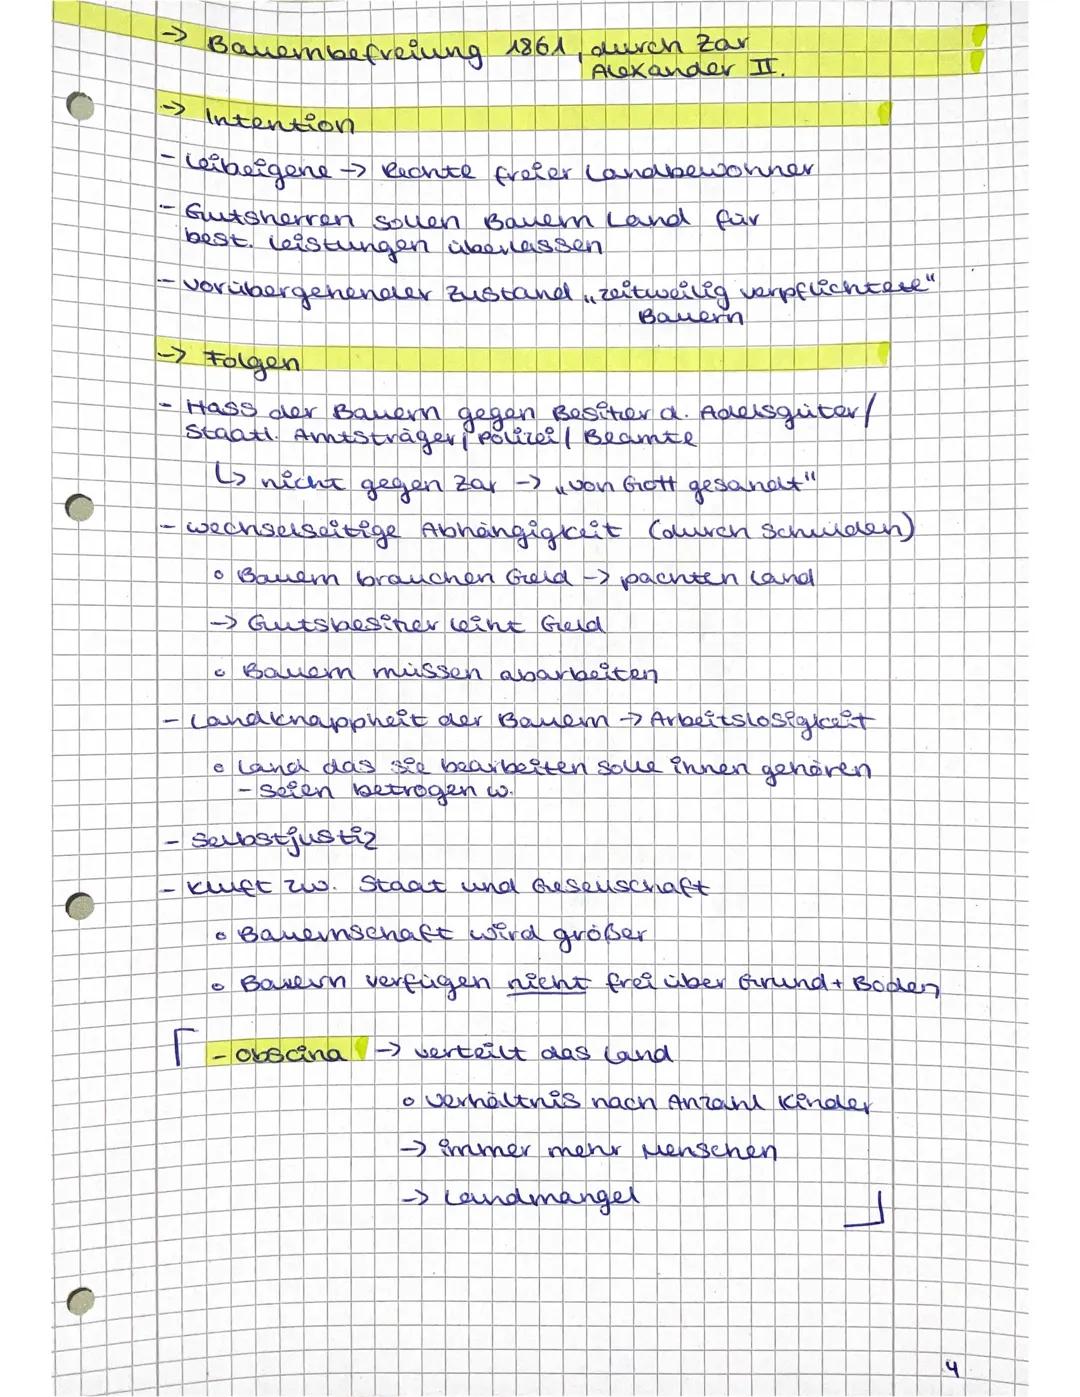 → Bauernbefreiung 1861, durch Zar
Alexander II.
→ Intention
- Leibeigene → Rechte freier Landbewohner
- Gutsherren sollen Bauern Land für
best. Leistungen überlassen
- vorübergehender Zustand „zeitweilig verpflichtete"
Bauern
→ Folgen
- Hass der Bauern gegen Besitzer d. Adelsgüter/
Staatl. Amtsträger/Polizei/Beamte
↳ nicht gegen Zar → „von Gott gesandt"
- wechselseitige Abhängigkeit (durch Schulden)
o Bauern brauchen Geld → pachten Land
→ Gutsbesitzer leiht Geld
o Bauern müssen abarbeiten
- Landknappheit der Bauern → Arbeitslosigkeit
o Land das sie bearbeiten solle ihnen gehören
- seien betrogen w.
- Selbstjustiz
- Kluft zw. Staat und Gesellschaft
o Bauernschaft wird größer
o Bauern verfügen nicht frei über Grund + Boden
- Obscina → verteilt das Land
o Verhältnis nach Anzahl Kinder
→ immer mehr Menschen
→ Landmangel
4